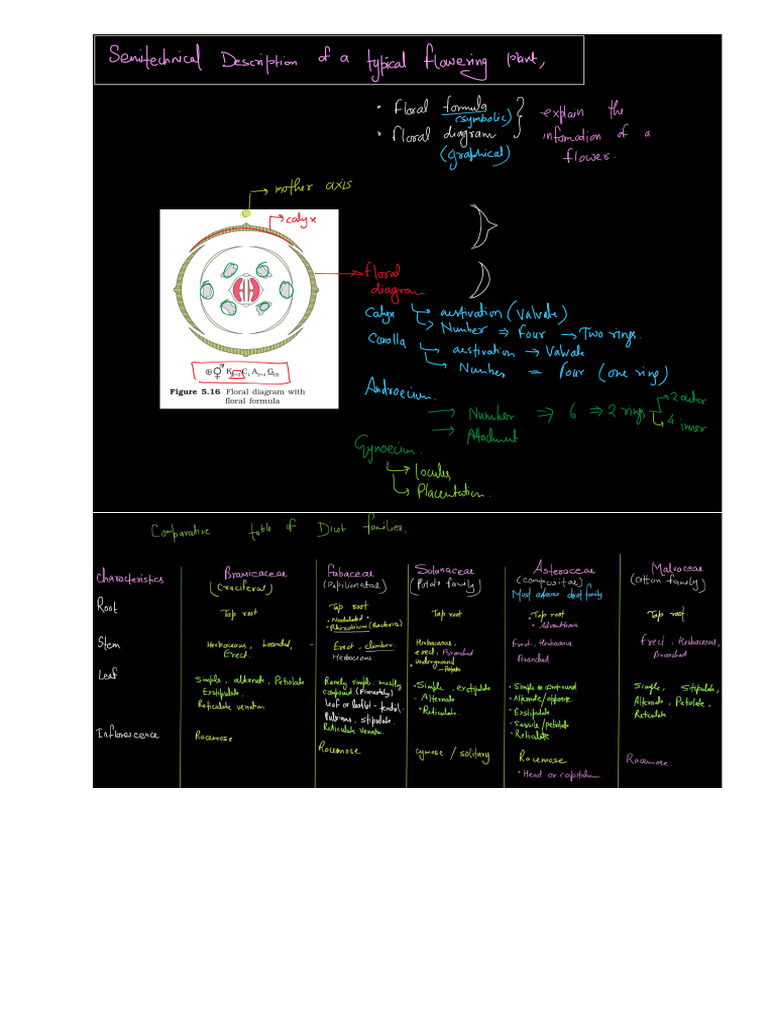 Semitechnical Description of a typical flowering plant,
• Floral formula
(symbolic)
• Floral diagram
(graphical)
explain the
information of a
flower.
mother axis
calyx
Floral
diagram
Figure 5.16 Floral diagram with
floral formula
Calyx → aestivation (Valvate)
→ Number ⇒ Four → Two rings.
Corolla
→ aestivation → Valvate
→ Number = four (one ring)
Androecium.
→ Number ⇒ 6 ⇒ 2 rings → 2 outer
→ 4 inner
→ Attachment
Gynoecium.
→ locules
→ Placentation.
Comparative table of Dicot families.
Characteristics
Brassicaceae
(Cruciferae)
Fabaceae
(Papilionatae)
Solanaceae
(Potato family)
Asteraceae
(compositae)
Most advance dicot family
Malvaceae
(Cotton family)
Root
Tap root
Tap root
• Nodulated •
• Rhizobium (Bacteria)
Tap root
• Tap root
• Adventitious
Tap root
Stem
Herbaceous, branched,
Erect.
Erect, climber
Herbaceous
Herbaceous,
erect, Branched
• Underground
– Potato
Erect, Herbaceous
Branched
Erect, Herbaceous,
Branched
Leaf
Simple, alternate, Petiolate
Exstipulate
Reticulate venation
Rarely simple, mostly
compound (Pinnately)
leaf or leaflet – tendril.
Pulvinus, stipulate.
Reticulate venation
• Simple, exstipulate
• Alternate
• Reticulate.
• Simple or compound
• Alternate/opposite.
• Exstipulate
• Sessile/petiolate
• Reticulate
Simple, Stipulate,
Alternate, Petiolate,
Reticulate.
Inflorescence
Racemose
Racemose
cymose / solitary
Racemose
• Head or capitulum
Racemose